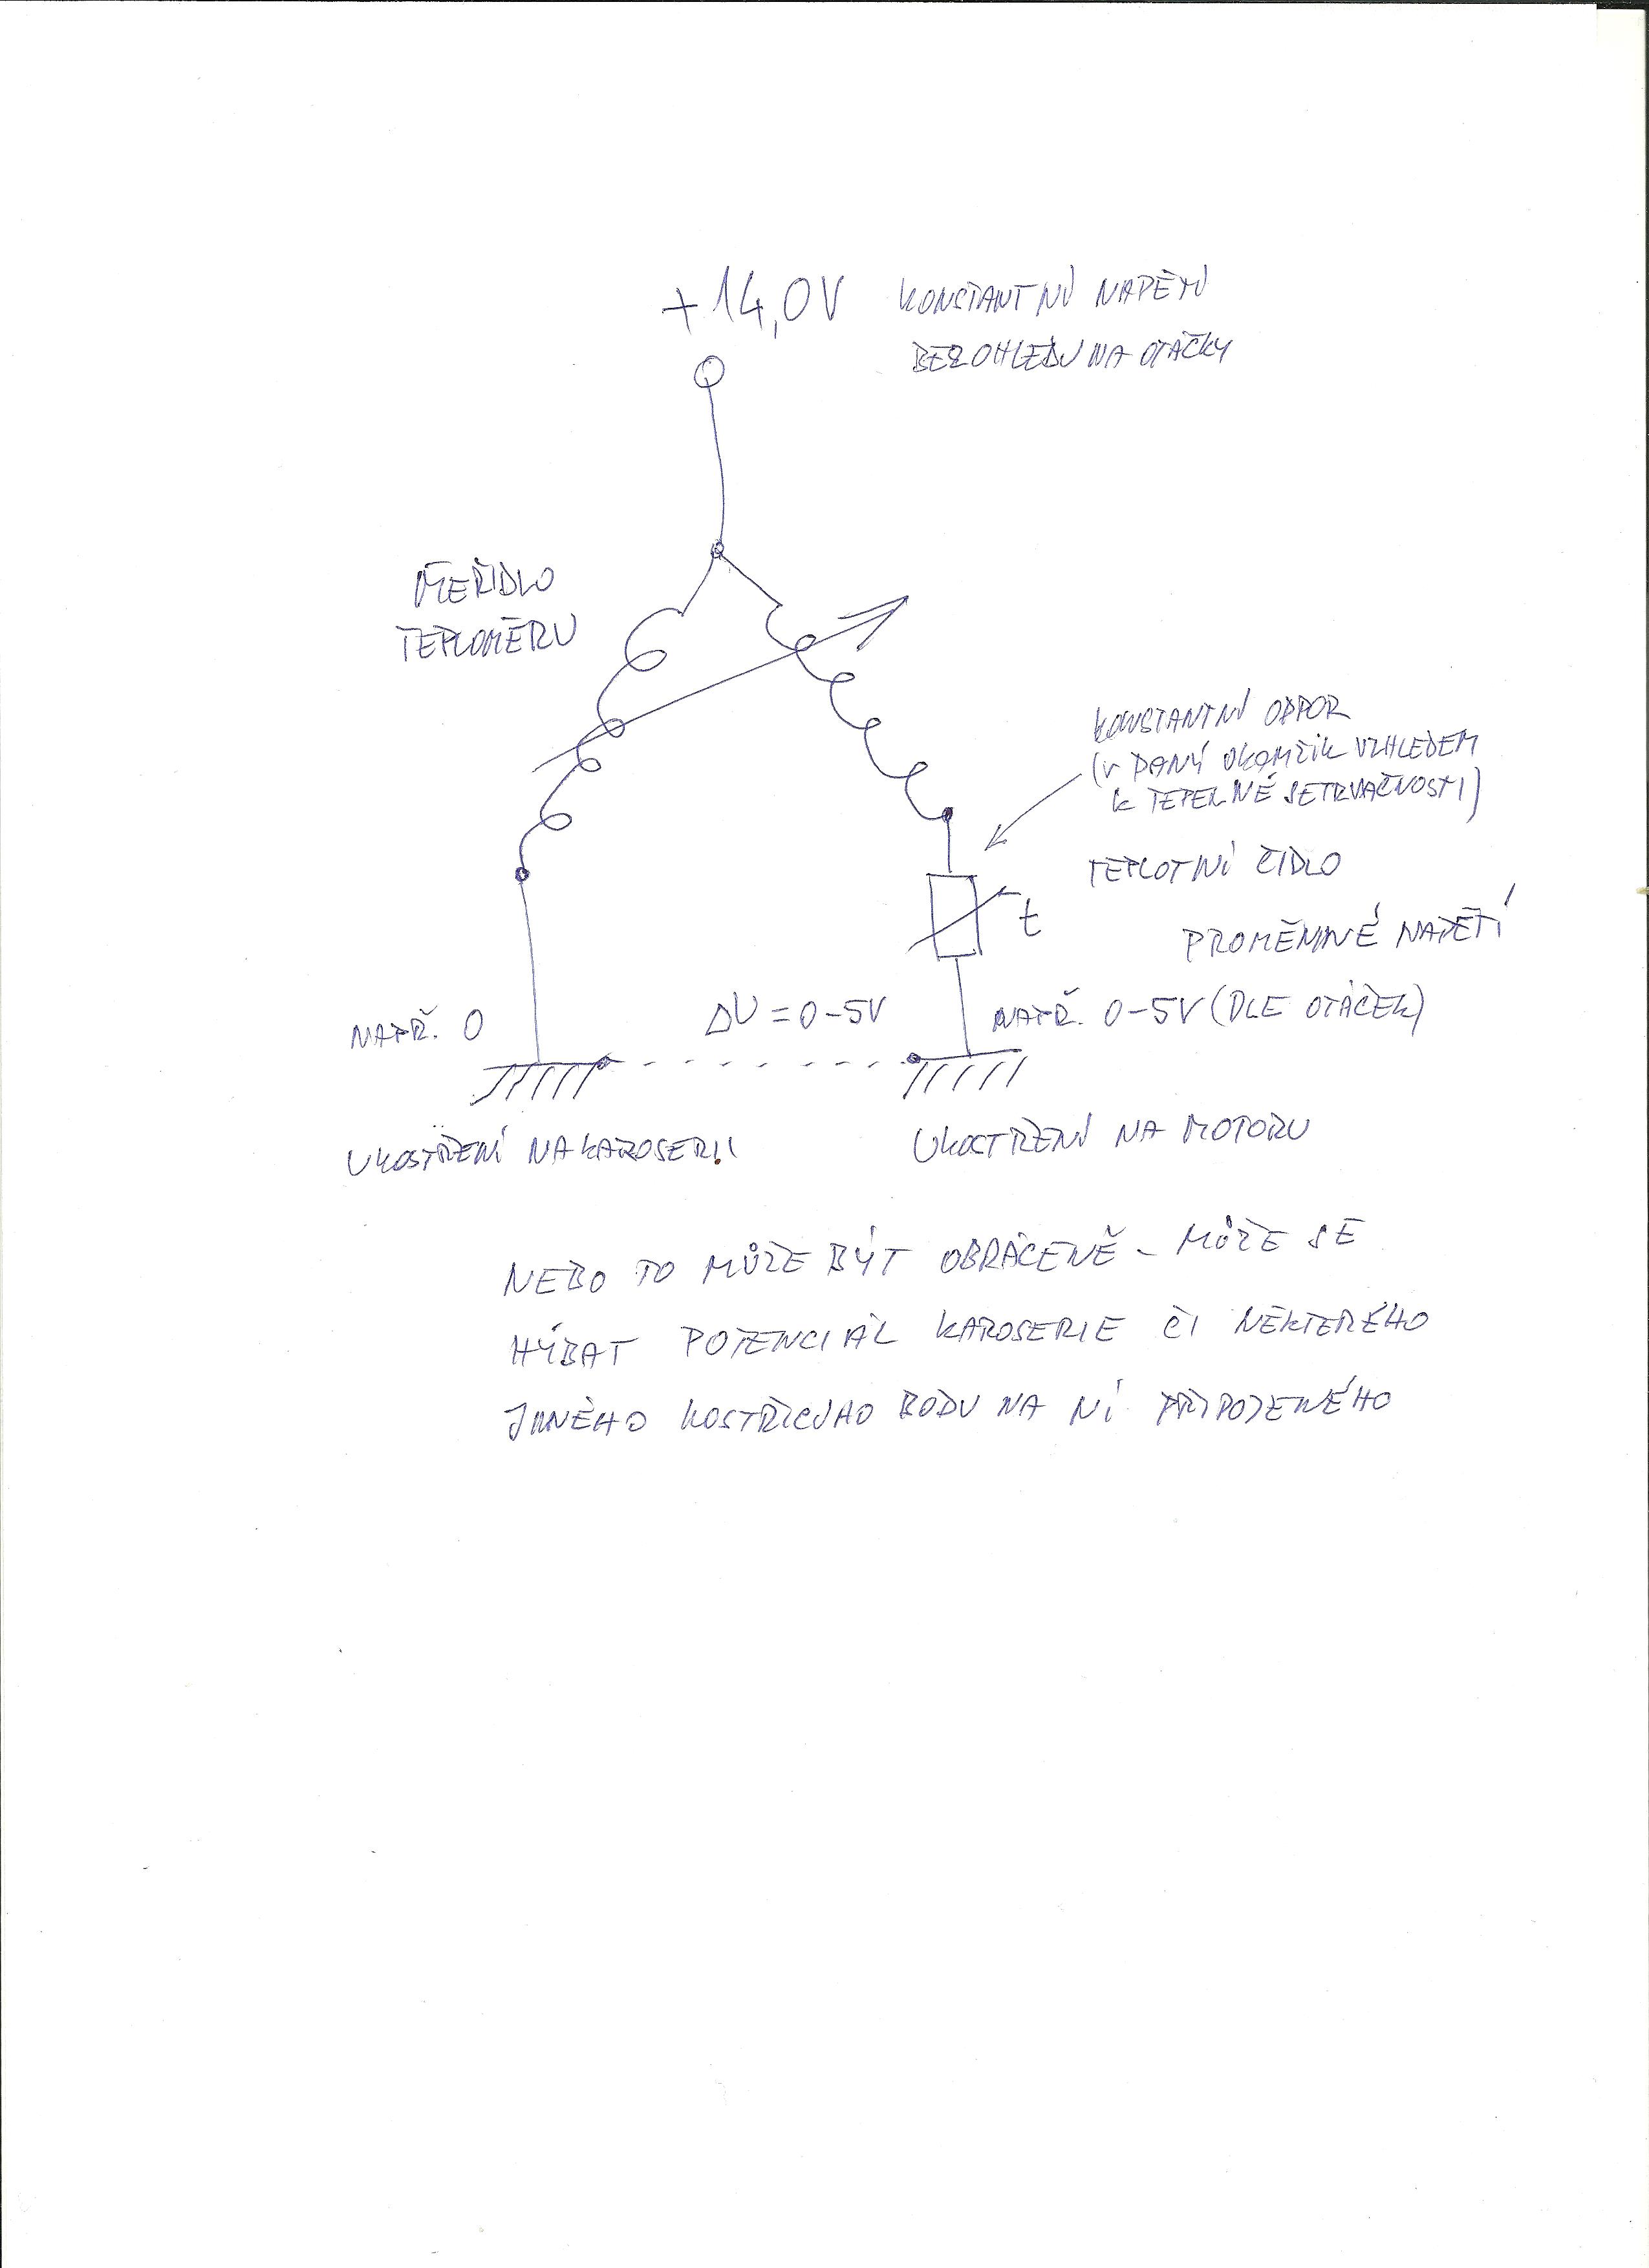 +14,0V KONSTANTNÍ NAPĚTÍ
BEZ OHLEDU NA OTÁČKY
MĚŘIDLO
TEPLOMĚRU
KONSTANTNÍ ODPOR
(V DANÝ OKAMŽIK VZHLEDEM
K TEPELNÉ SETRVAČNOSTI)
TEPLOTNÍ ČIDLO
t
PROMĚNNÉ NAPĚTÍ
NAPŘ. 0
ΔU = 0-5V
NAPŘ. 0-5V (DLE OTÁČEK)
UKOSTŘENÍ NA KAROSERII
UKOSTŘENÍ NA MOTORU
NEBO TO MŮŽE BÝT OBRÁCENĚ - MŮŽE SE
HÝBAT POTENCIÁL KAROSERIE ČI NĚKTERÉHO
JINÉHO KOSTŘÍCÍHO BODU NA NÍ PŘIPOJENÉHO